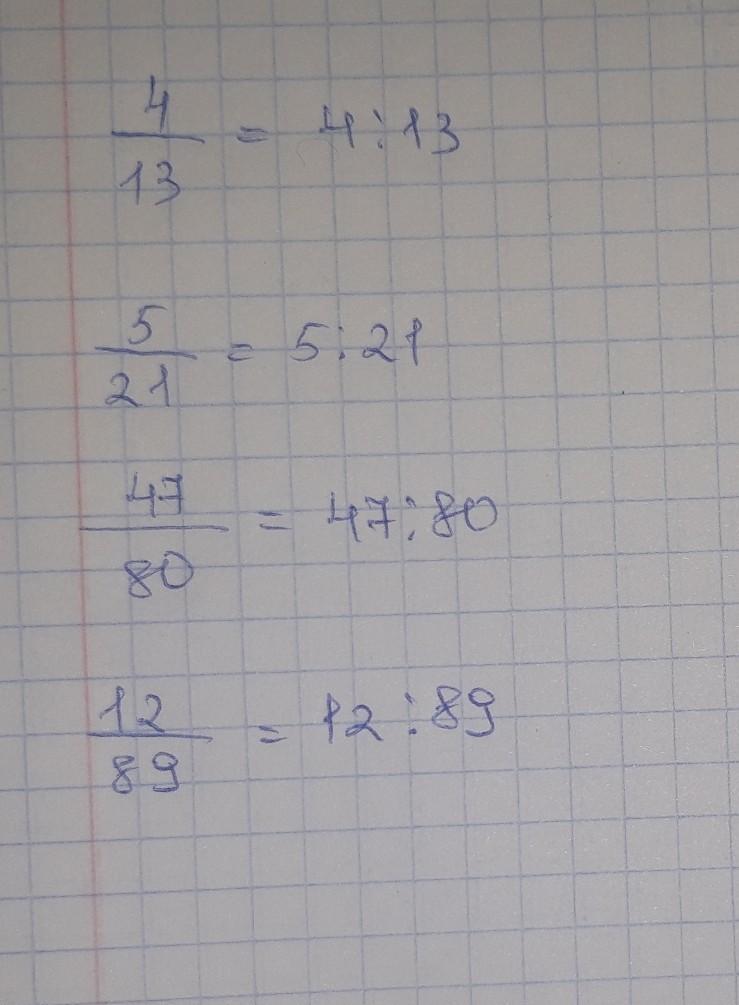 4/13 = 4:13
5/21 = 5:21
47/80 = 47:80
12/89 = 12:89